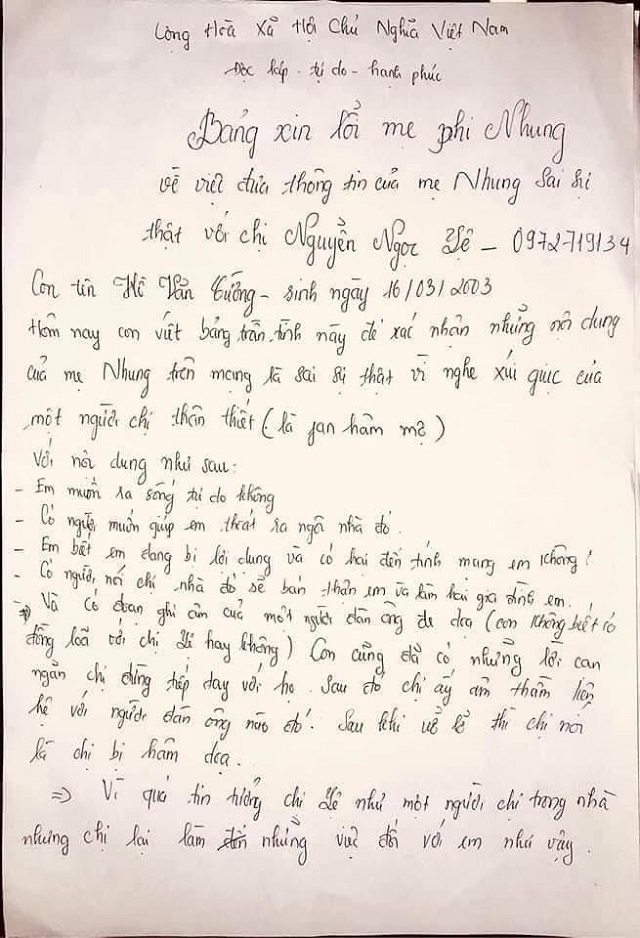 Cộng Hoà Xã Hội Chủ Nghĩa Việt Nam
Độc lập - tự do - hạnh phúc
Bảng xin lỗi mẹ phi Nhung
về việc đưa thông tin của mẹ Nhung sai sự
thật với chị Nguyễn Ngọc Yệ - 0972719134
Con tên Hồ Văn Cường - sinh ngày 16/03/2003
Hôm nay con viết bảng trần tình này để xác nhận những nội dung
của mẹ Nhung trên mạng là sai sự thật vì nghe xúi giục của
một người chị thân thiết (là fan hâm mộ)
Với nội dung như sau:
- Em muốn ra sống tự do không
- Có người muốn giúp em thoát ra ngôi nhà đó.
- Em biết em đang bị lợi dụng và có hại đến tính mạng em không!
- Có người nói chỉ nhà đó sẽ bán thân em và làm hại gia đình em.
=> Và có đoạn ghi âm của một người đàn ông đe doạ (con không biết có
đồng loã với chị Yê hay không) Con cũng đã có những lời can
ngăn chị đừng tiếp tay với họ. Sau đó chị ấy âm thầm liên
hệ với người đàn ông nào đó. Sau khi vỡ lẽ thì chị nói
là chị bị hâm doạ.
=> Vì quá tin tưởng chị Yê như một người chị trong nhà
nhưng chị lại làm những việc đối với em như vậy.